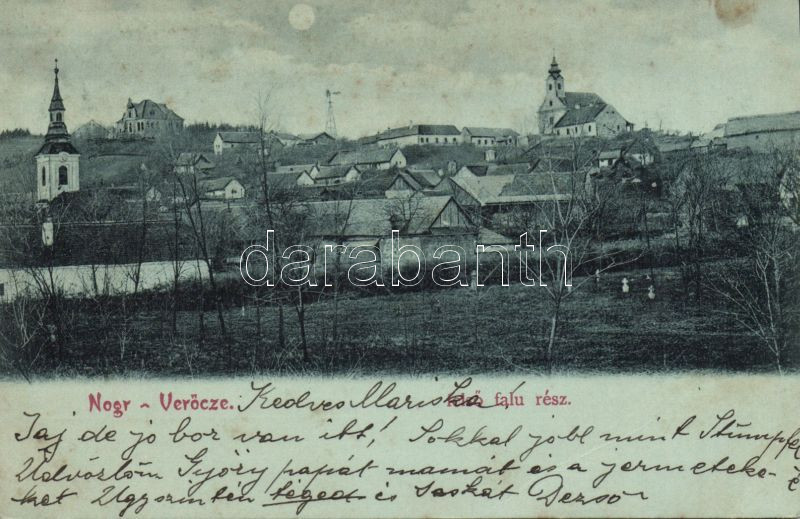 darabanth
Nogr - Verőcze. Kedves Mariska! falu rész.
Jaj de jo bor van itt! Sokkal jobb mint Stumpfel
Üdvözlöm Győry papát mamát és a jermeteke-
ket Ugyszintén téged és Saskát Dezső